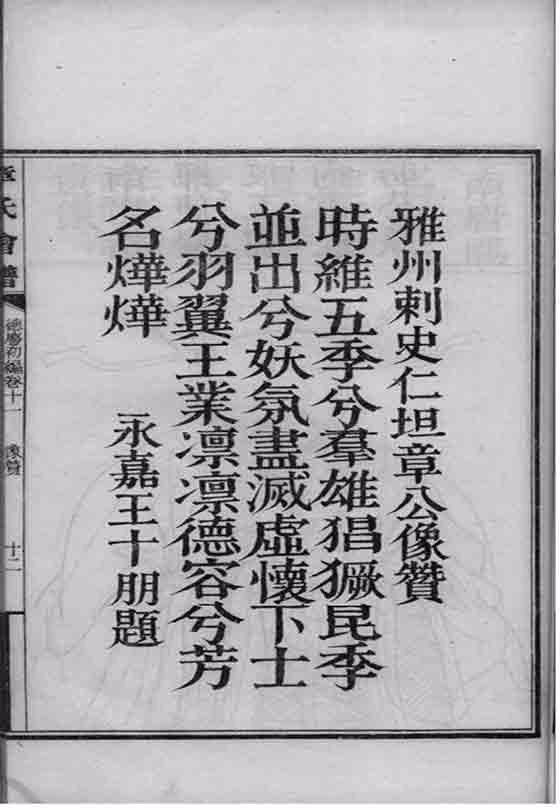 雅州刺史仁坦章公像贊
時維五季兮羣雄猖獗昆季
並出兮妖氛盡滅虛懷下士
兮羽翼王業凛凛德容兮芳
名燁燁　永嘉王十朋題
章氏會譜　德慶初編卷十一　像贊　十二